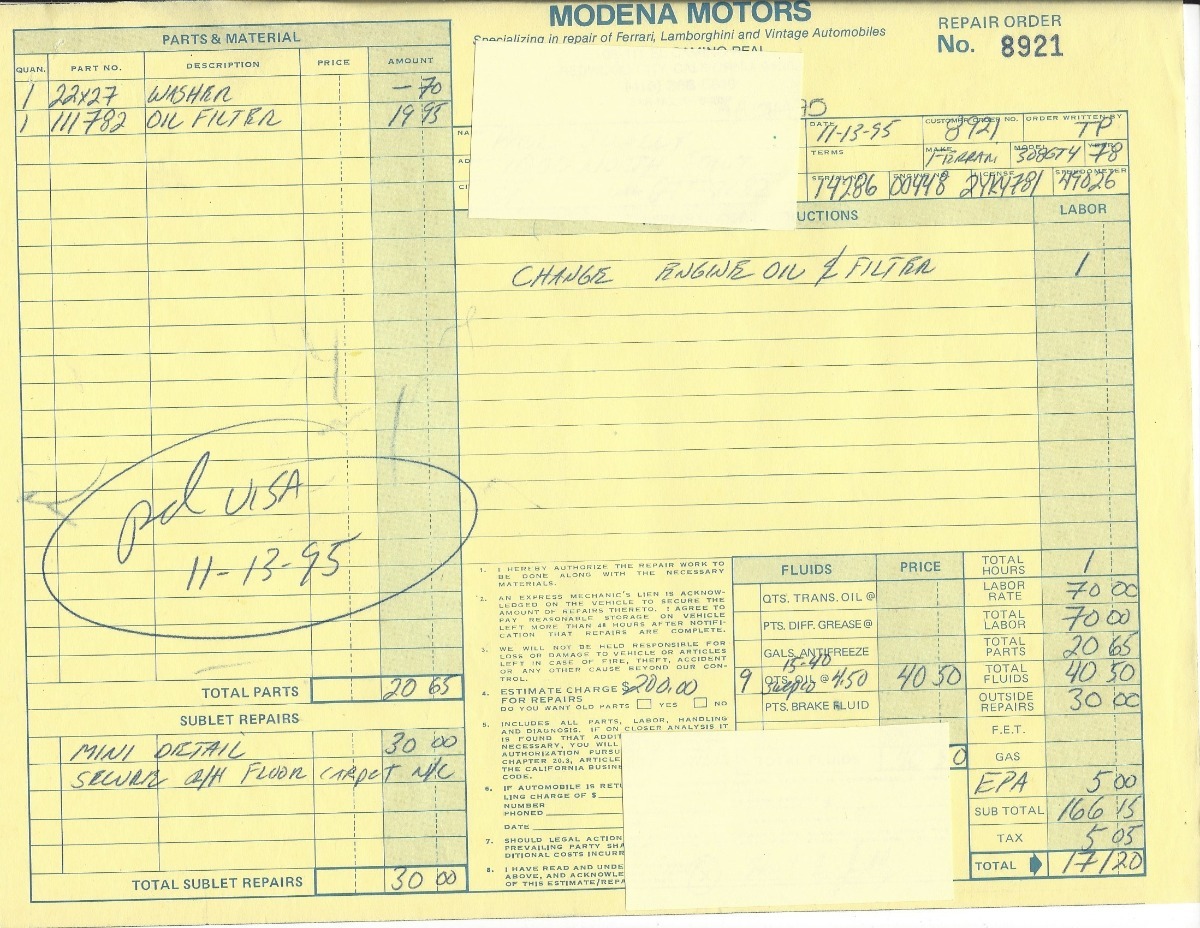 MODENA MOTORS
Specializing in repair of Ferrari, Lamborghini and Vintage Automobiles
REPAIR ORDER
No. 8921
PARTS & MATERIAL
QUAN. PART NO. DESCRIPTION PRICE AMOUNT
1 22x27 WASHER — 70
1 111782 OIL FILTER 19 95
DATE 11-13-95 CUSTOMER ORDER NO. 8921 ORDER WRITTEN BY TP
TERMS MAKE FERRARI MODEL 308GT4 YEAR 78
SERIAL NO. 14286 ENGINE NO. 00448 LICENSE SPEEDOMETER 49026
UCTIONS LABOR
CHANGE ENGINE OIL & FILTER 1
pd VISA
11-13-95
TOTAL PARTS 20 65
SUBLET REPAIRS
MINI DETAIL 30 00
SECURE R/H FLOOR CARPET N/C
TOTAL SUBLET REPAIRS 30 00
1. I HEREBY AUTHORIZE THE REPAIR WORK TO
BE DONE ALONG WITH THE NECESSARY
MATERIALS.
2. AN EXPRESS MECHANIC'S LIEN IS ACKNOW-
LEDGED ON THE VEHICLE TO SECURE THE
AMOUNT OF REPAIRS THERETO. I AGREE TO
PAY REASONABLE STORAGE ON VEHICLE
LEFT MORE THAN 48 HOURS AFTER NOTIFI-
CATION THAT REPAIRS ARE COMPLETE.
3. WE WILL NOT BE HELD RESPONSIBLE FOR
LOSS OR DAMAGE TO VEHICLE OR ARTICLES
LEFT IN CASE OF FIRE, THEFT, ACCIDENT
OR ANY OTHER CAUSE BEYOND OUR CON-
TROL.
4. ESTIMATE CHARGE $200.00
FOR REPAIRS
DO YOU WANT OLD PARTS YES NO
5. INCLUDES ALL PARTS, LABOR, HANDLING
AND DIAGNOSIS. IF ON CLOSER ANALYSIS IT
IS FOUND THAT ADDIT
NECESSARY, YOU WILL
AUTHORIZATION PURSU
CHAPTER 20.3, ARTICLE
THE CALIFORNIA BUSINE
CODE.
6. IF AUTOMOBILE IS RETU
LING CHARGE OF $
NUMBER
PHONED
DATE
7. SHOULD LEGAL ACTION
PREVAILING PARTY SHA
DITIONAL COSTS INCURR
8. I HAVE READ AND UNDE
ABOVE, AND ACKNOWLE
OF THIS ESTIMATE/REPA
FLUIDS PRICE
QTS. TRANS. OIL @
PTS. DIFF. GREASE @
GALS. ANTIFREEZE
15-40
9 QTS. OIL @ 4.50 40 50
PTS. BRAKE FLUID
TOTAL HOURS 1
LABOR RATE 70 00
TOTAL LABOR 70 00
TOTAL PARTS 20 65
TOTAL FLUIDS 40 50
OUTSIDE REPAIRS 30 00
F.E.T.
GAS
EPA 5 00
SUB TOTAL 166 15
TAX 5 05
TOTAL 171 20